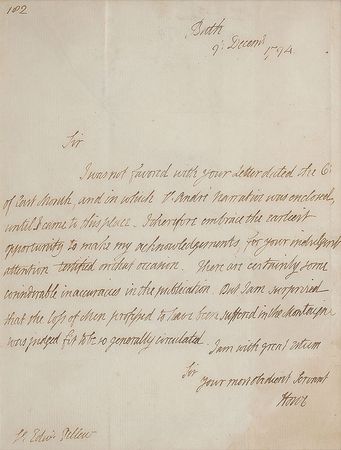 182
Bath
9: Decemr
1794
Sir
I was not favored with your Letter dated the 6:
of last Month, and in which St André Narrative was enclosed,
until I came to this place. I therefore embrace the earliest
opportunity to make my acknowledgements for your indulgent
attention testified on that occasion. There are certainly some
considerable inaccuracies in the publication. But I am surprised
that the loss of Men professed to have been suffered in the Montagne
was judged fit to be so generally circulated.
I am with great esteem
Sir
Your most obedient Servant
Howe
Sr. Edwd. Pellew